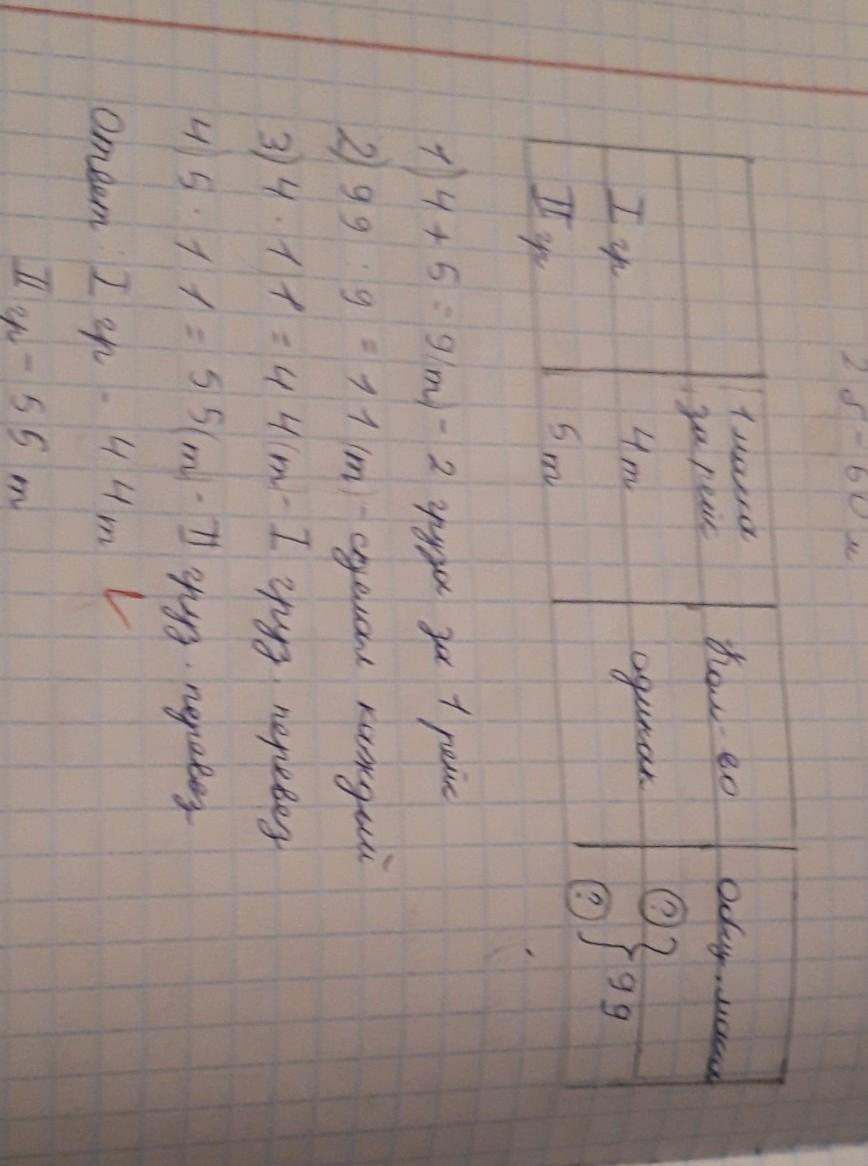 1 маш за рейс Кол-во Общ. масса
I гр 4т одинак (?) } 99
II гр 5т (?)
1) 4 + 5 = 9(т) - 2 груза за 1 рейс
2) 99 : 9 = 11(т) - сделал каждый
3) 4 · 11 = 44(т) - I груз. перевез
4) 5 · 11 = 55(т) - II груз. перевез
Ответ: I гр - 44т
II гр - 55т